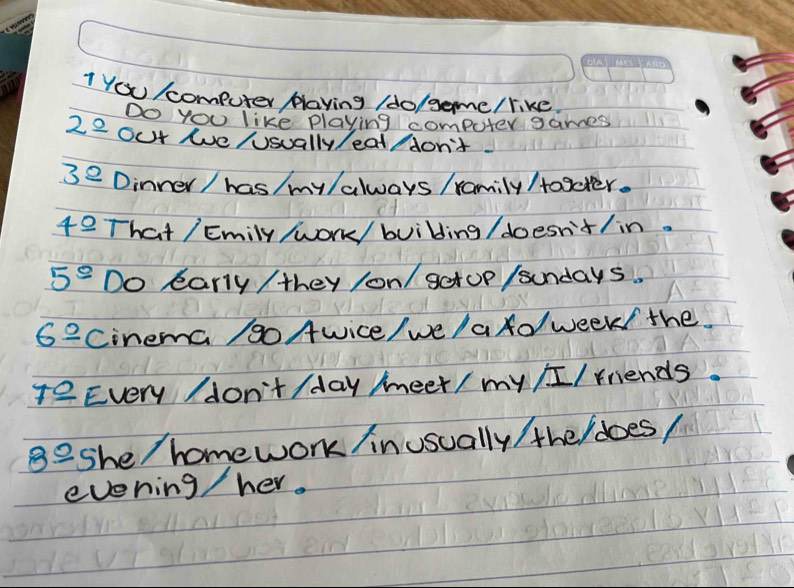 DIA MES AÑO
1 YOU / computer / Playing / do / game / like.
DO YOU like playing computer games
2º out / we / usually / eat / don't.
3º Dinner / has / my / always / family / togeter.
4º That / Emily / work / building / doesn't / in.
5º Do early / they / on / get up / sundays.
6º Cinema / go / twice / we / a / to / week / the.
7º Every / don't / day / meet / my / I / friends.
8º She / homework / in usually / the / does /
evening / her.